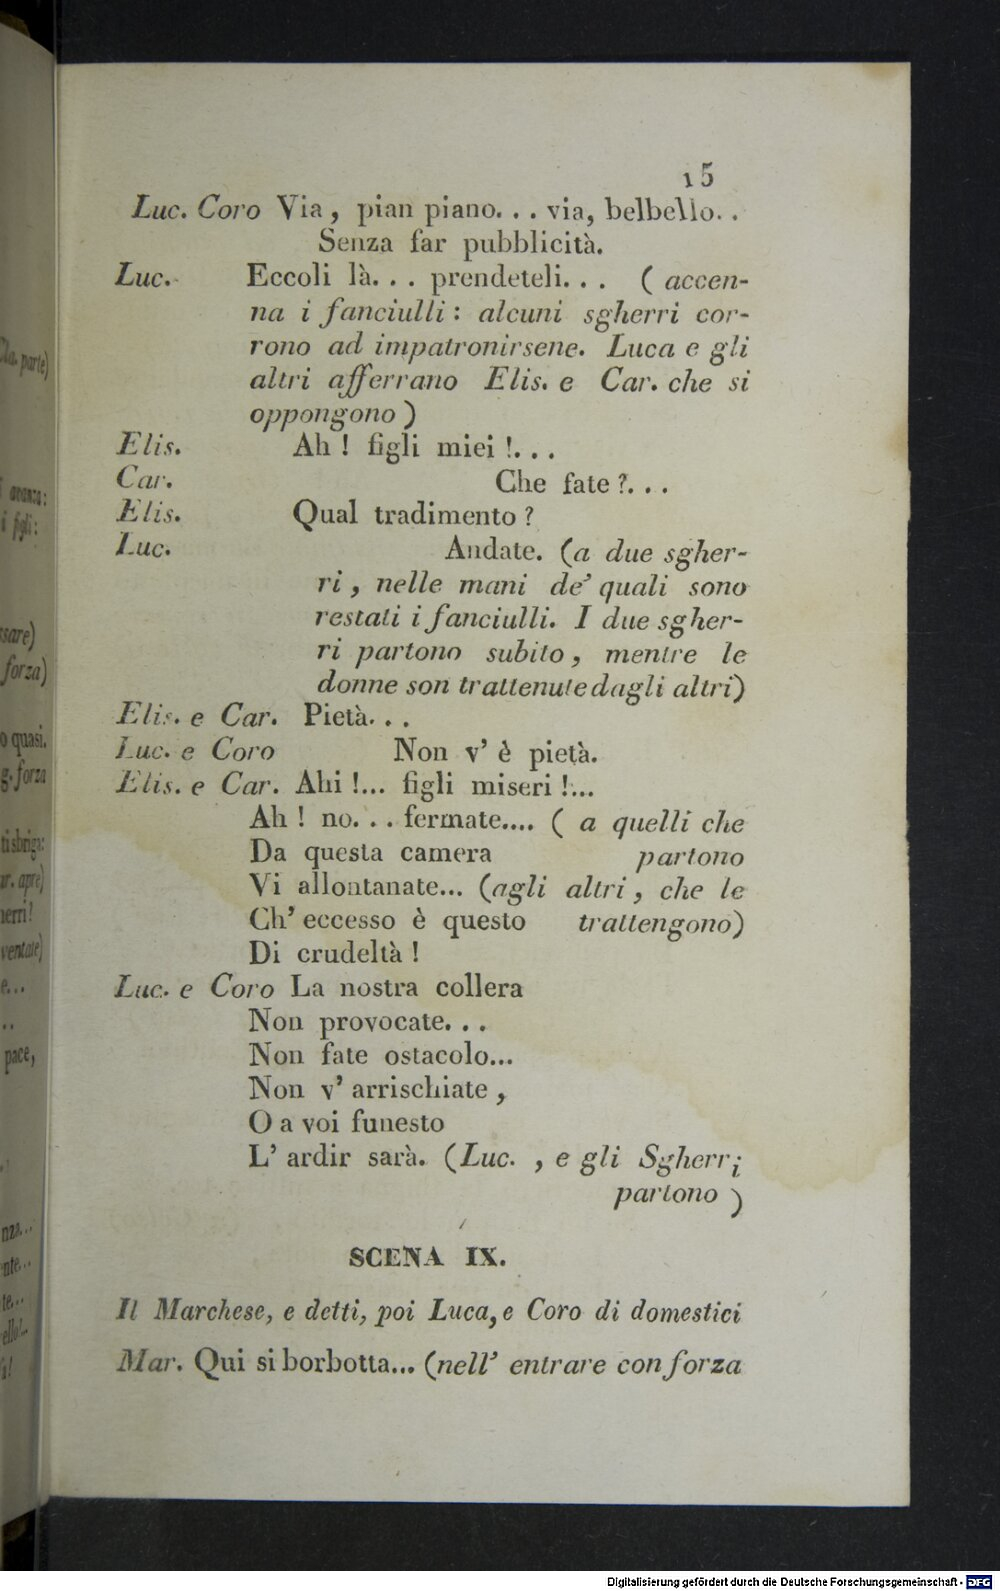 15
Luc. Coro Via, pian piano. . . via, belbello. .
Senza far pubblicità.
Luc. Eccoli là. . . prendeteli. . . ( accen-
na i fanciulli : alcuni sgherri cor-
rono ad impatronirsene. Luca e gli
altri afferrano Elis. e Car. che si
oppongono )
Elis. Ah ! figli miei !. . .
Car. Che fate ?. . .
Elis. Qual tradimento ?
Luc. Andate. (a due sgher-
ri, nelle mani de' quali sono
restati i fanciulli. I due sgher-
ri partono subito, mentre le
donne son trattenute dagli altri)
Elis. e Car. Pietà. . .
Luc. e Coro Non v' è pietà.
Elis. e Car. Ahi !... figli miseri !...
Ah ! no. . . fermate.... ( a quelli che
Da questa camera partono
Vi allontanate... (agli altri, che le
Ch' eccesso è questo trattengono)
Di crudeltà !
Luc. e Coro La nostra collera
Non provocate. . .
Non fate ostacolo...
Non v' arrischiate ,
O a voi funesto
L' ardir sarà. (Luc. , e gli Sgherri
partono )
SCENA IX.
Il Marchese, e detti, poi Luca, e Coro di domestici
Mar. Qui si borbotta... (nell' entrare con forza
parte)
avanza:
i figli:
ssare)
forza)
o quasi.
g. forza
ti sbriga:
ar. apre)
herri!
ventate)
e...
..
pace,
nza...
nte...
te...
ello!..
a!
Digitalisierung gefördert durch die Deutsche Forschungsgemeinschaft - DFG